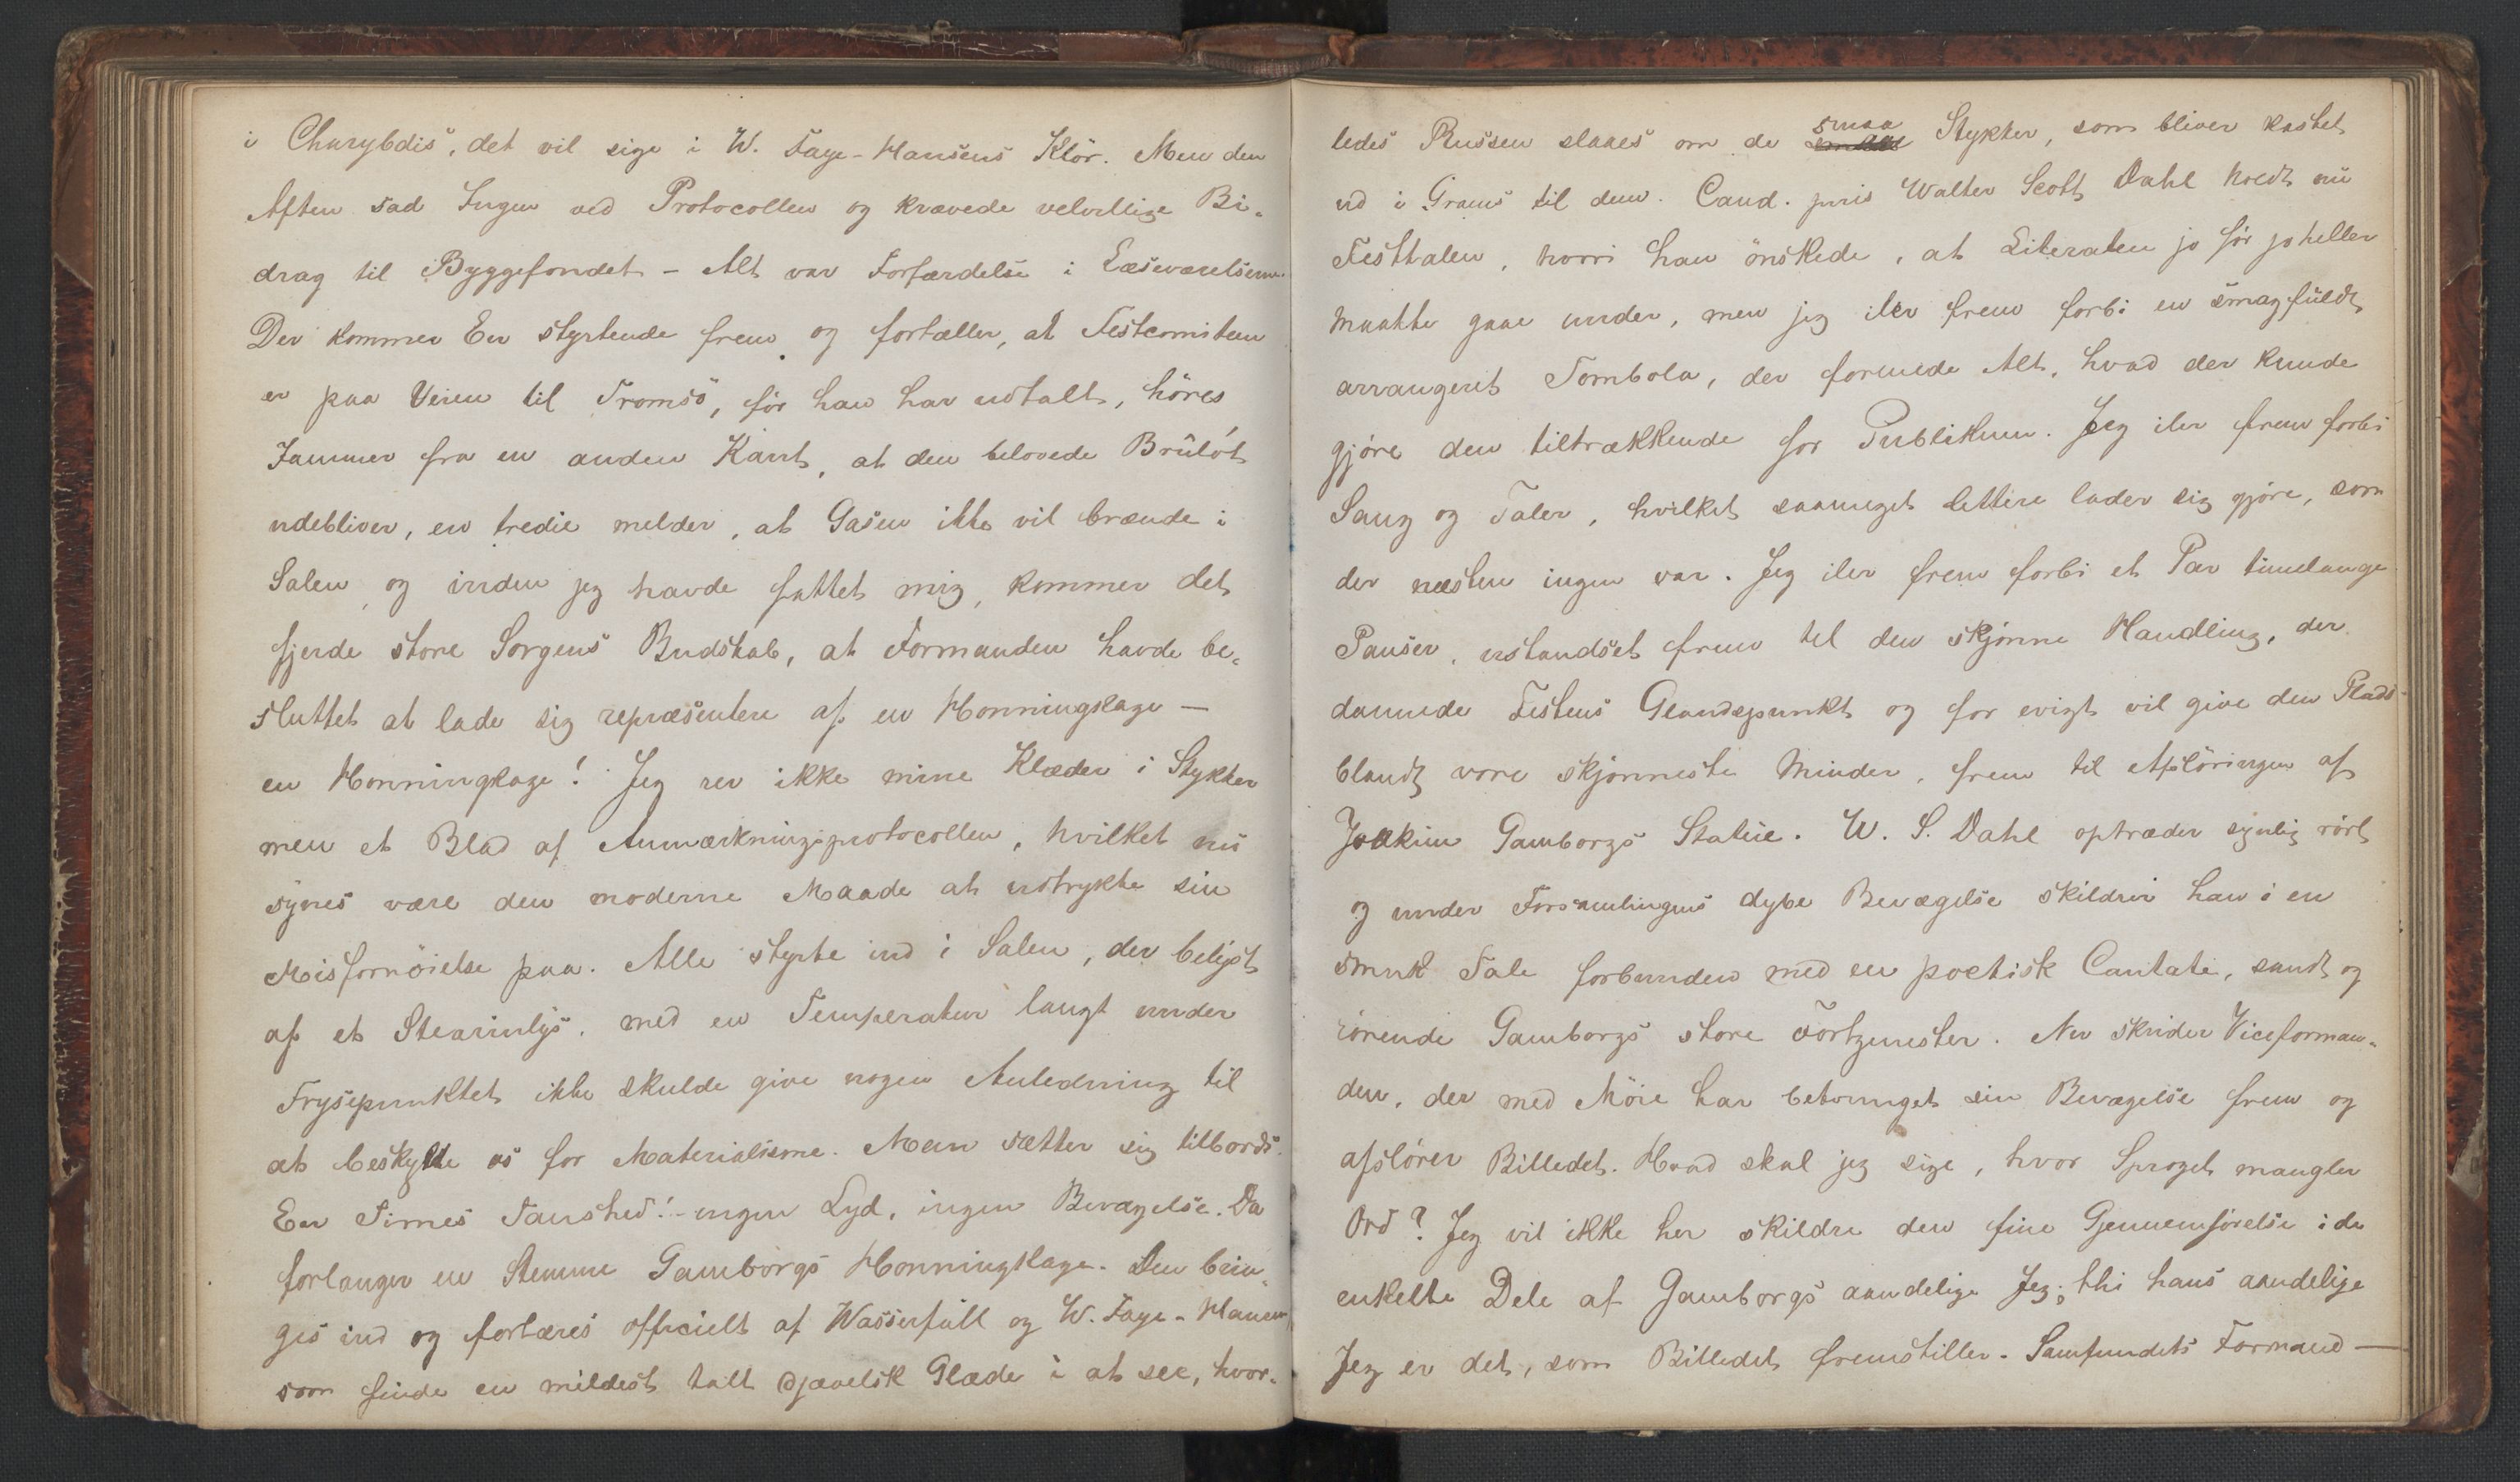 i Charybdis, det vil sige i W. Faye-Hansens Klör. Men den
Aften sad Ingen ved Protocollen og krævede velvillige Bi-
drag til Byggefondet - Alt var Forfærdelse i Læseværelserne.
Der kommer En styrtende frem og fortæller, at Festcomiteen
er paa Veien til Tromsö, för han har udtalt, höres
Jammer fra en anden Kant, at den belovede Brûlót
udebliver, en tredie melder, at Gasen ikke vil brænde i
Salen, og inden jeg havde fattet mig, kommer det
fjerde store Sorgens Budskab, at Formanden havde be-
sluttet at lade sig repræsentere af en Honningkage —
en Honningkage! Jeg rev ikke mine Klæder i Stykker
men et Blad af Anmærkningsprotocollen, hvilket nu
synes være den moderne Maade at udtrykke sin
Misfornöielse paa. Alle styrte ind i Salen, der belyst
af et Stearinlys, med en Temperatur langt under
Frysepunktet ikke skulde give nogen Anledning til
at beskylde os for Materialisme. Man sætter sig tilbords.
En Times Taushed! - ingen Lyd, ingen Bevægelse. Da
forlanger en Stemme Gamborgs Honningkage. Den brin-
ges ind og fortæres officielt af Wasserfall og W. Faye-Hansen
som finde en mildest talt djævelsk Glæde i at see, hvor-
ledes Russen slaaes om de smaa Stykker, som bliver kastet
ud i Grams til dem. Cand. juris Walter Scott Dahl holdt nu
Festtalen, hvori han önskede, at Literaten jo för jo heller
maatte gaae under, men jeg iler frem forbi en smagfuldt
arrangeret Tombola, der formede Alt, hvad der kunde
gjöre den tiltrækkende for Publikum. Jeg iler frem forbi
Sang og Taler, hvilket saameget lettere lader sig gjöre, som
der næsten ingen var. Jeg iler frem forbi et Par timelange
Pauser, ustandset frem til den skjönne Handling, der
dannede Festens Glandspunkt og for evigt vil give den Plads
blandt vore skjönneste Minder, frem til Afslöringen af
Joakim Gamborgs Statue. W. S. Dahl optræder synlig rört
og under Forsamlingens dybe Bevægelse skildrer han i en
smuk Tale forbunden med en poetisk Cantate, sandt og
rörende Gamborgs store Fortjenester. Nu skrider Viceforman-
den, der med Möie har betvunget sin Bevægelse frem og
afslörer Billedet. Hvad skal jeg sige, hvor Sproget mangler
Ord? Jeg vil ikke her skildre den fine Gjennemförelse i de
enkelte Dele af Gamborgs aandelige Jeg; thi hans aandelige
Jeg er det, som Billedet fremstiller. Samfundets Formand —